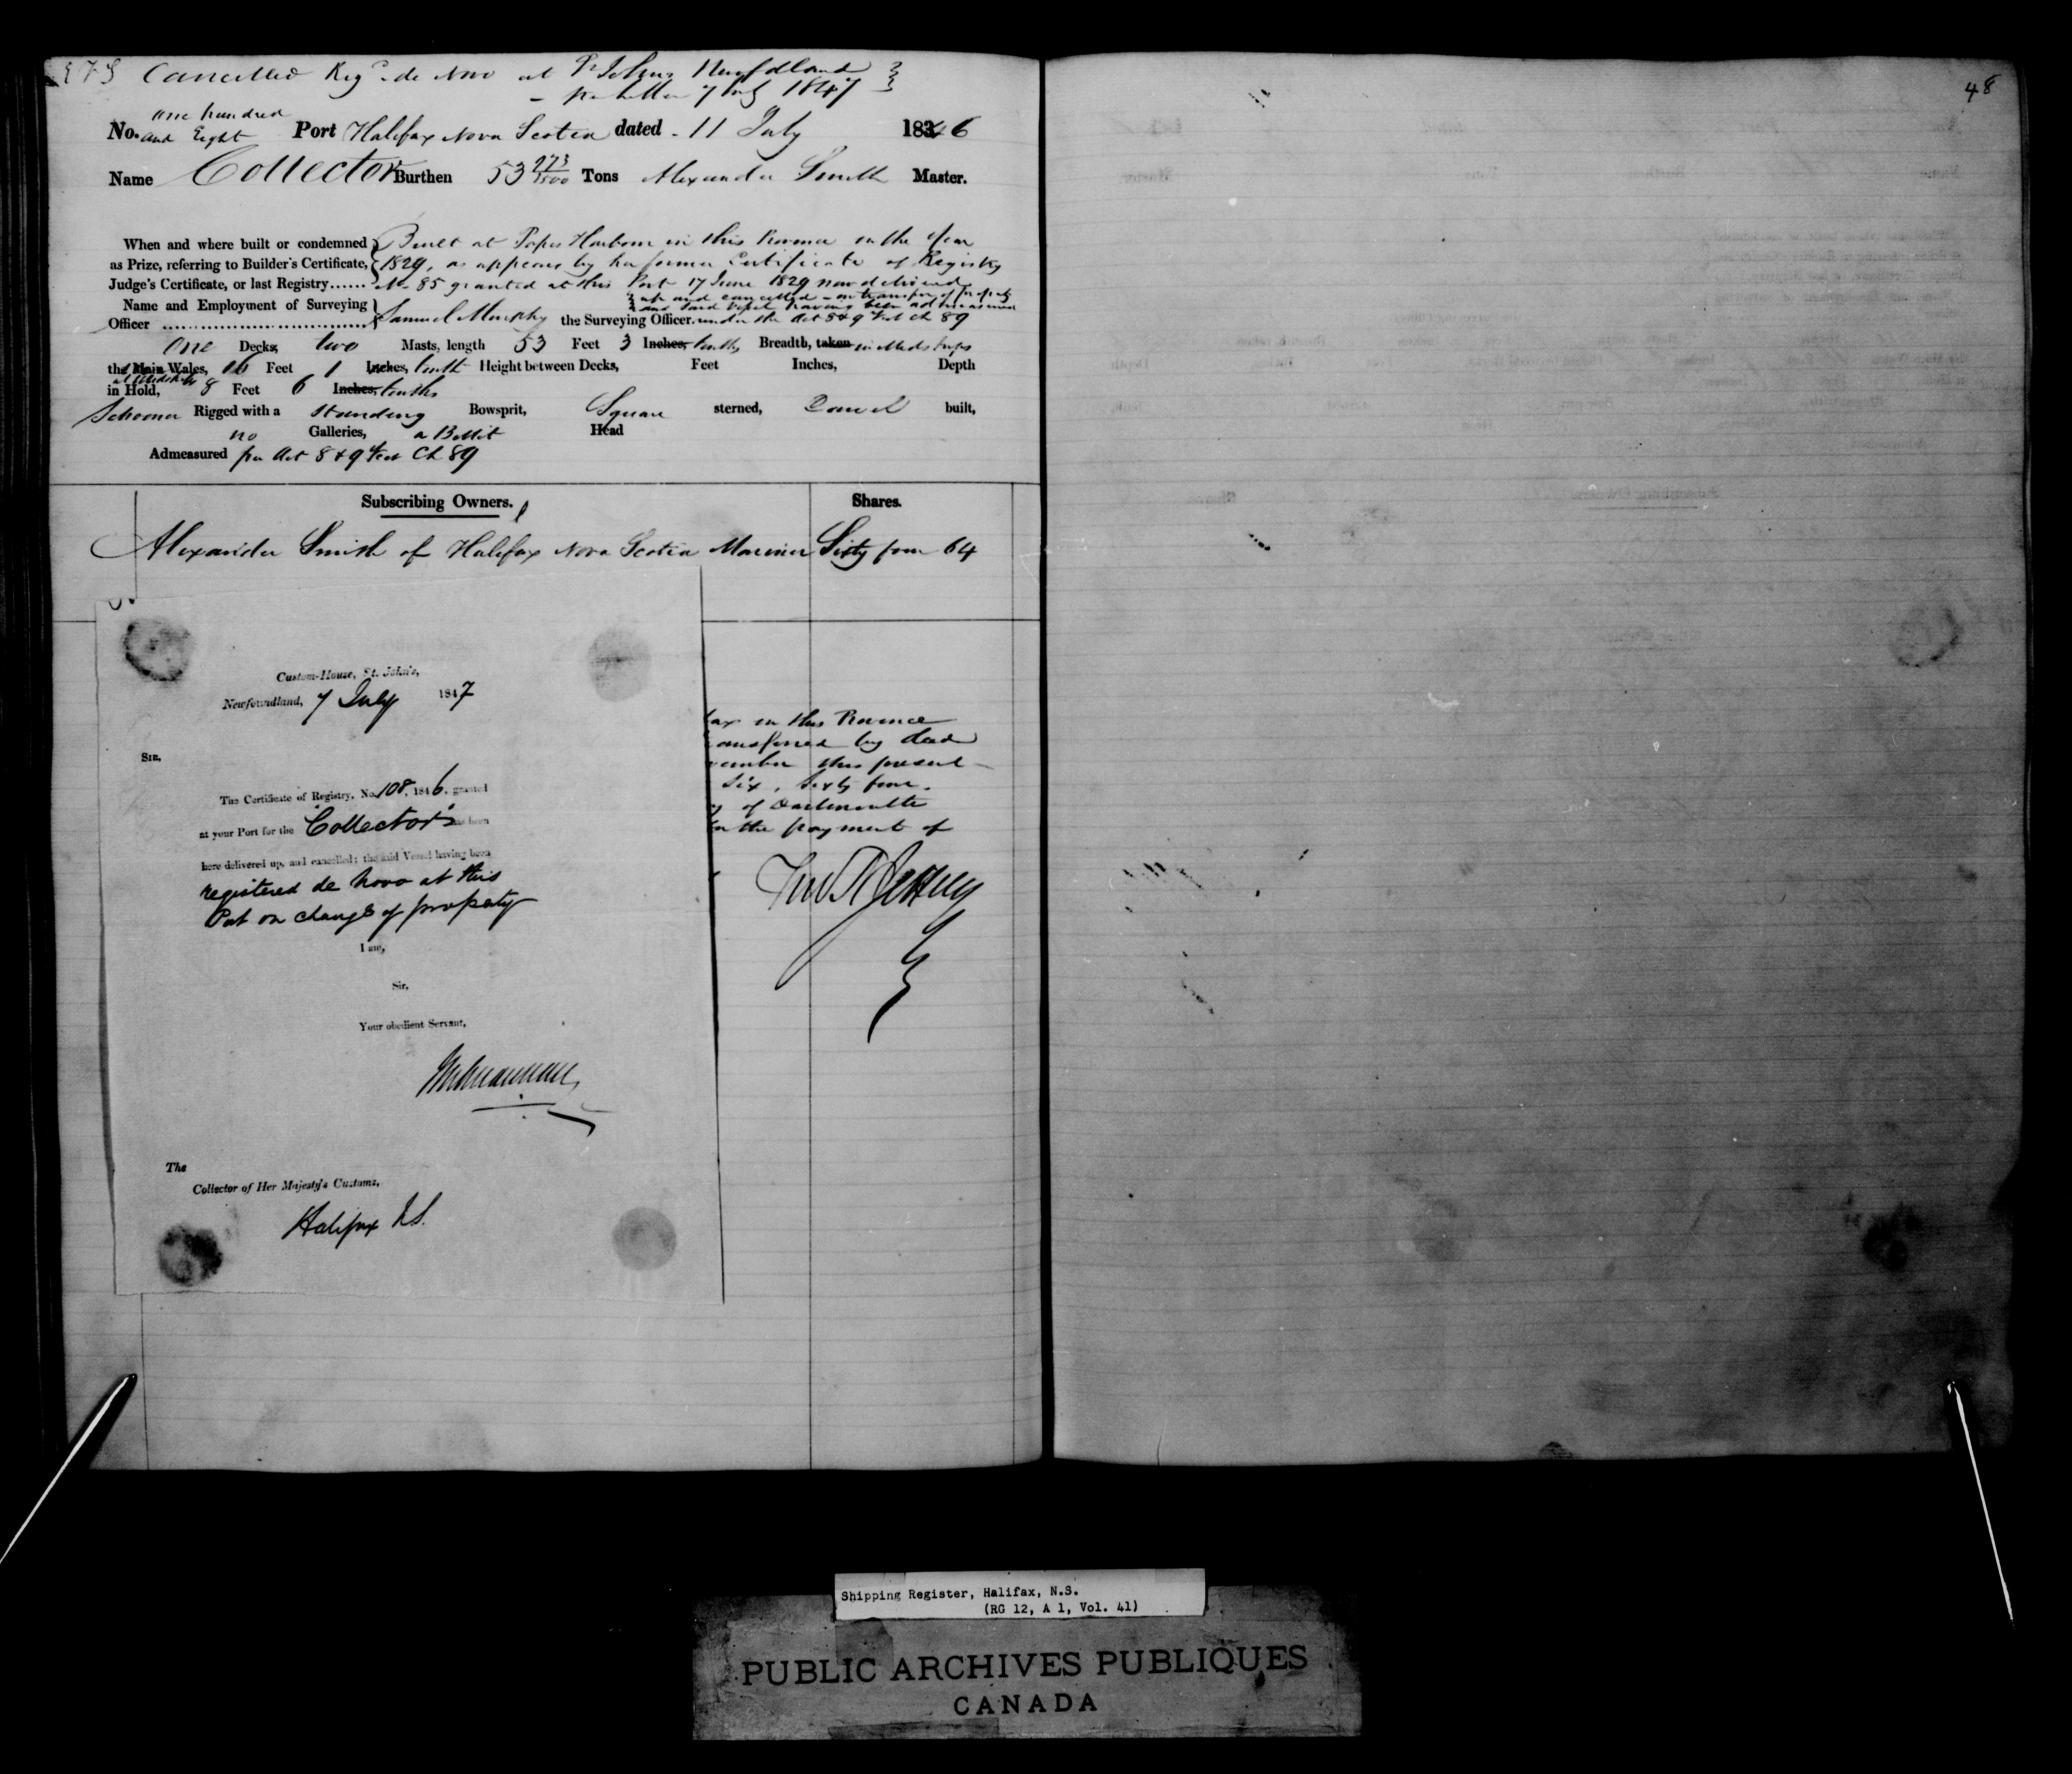 Cancelled Regd de Novo at St Johns Newfdland
letter 7 July 1847
one hundred
No. and Eight Port Halifax Nova Scotia dated - 11 July 1846
Name Collector Burthen 53 273/3500 Tons Alexander Smith Master.
When and where built or condemned Built at Popes Harbour in this Province in the Year
as Prize, referring to Builder's Certificate, 1829, as appears by her former Certificate of Registry
Judge's Certificate, or last Registry...... No 85 granted at this Port 17 June 1829 now delivered
up and cancelled - on transfer of property
Name and Employment of Surveying and said Vessel having been admeasured
Officer Samuel Murphy the Surveying Officer. under the Act 8 & 9 Vict Ch 89
One Decks, two Masts, length 53 Feet 3 Inches, tenths Breadth, taken in Midships
the Main Wales, 16 Feet 1 Inches, tenth Height between Decks, Feet Inches, Depth
at Midships
in Hold, 8 Feet 6 Inches, tenths
Schooner Rigged with a standing Bowsprit, Square sterned, Carvel built,
no Galleries, a Billit Head
Admeasured per Act 8 & 9 Vict Ch 89
Subscribing Owners. Shares.
Alexander Smith of Halifax Nova Scotia Mariner Sixty four 64
Custom-House, St. John's,
Newfoundland, 7 July 1847
Sir,
The Certificate of Registry, No. 108, 1846, granted
at your Port for the "Collector" has been
here delivered up, and cancelled; the said Vessel having been
registered de novo at this
Port on change of property
I am,
Sir,
Your obedient Servant,
The
Collector of Her Majesty's Customs,
Halifax N.S.
fax in this Province
ransferred by deed
vember this present
Six, Sixty four.
y of Dartmouth
for the payment of
48
Shipping Register, Halifax, N.S.
(RG 12, A 1, Vol. 41)
PUBLIC ARCHIVES PUBLIQUES
CANADA